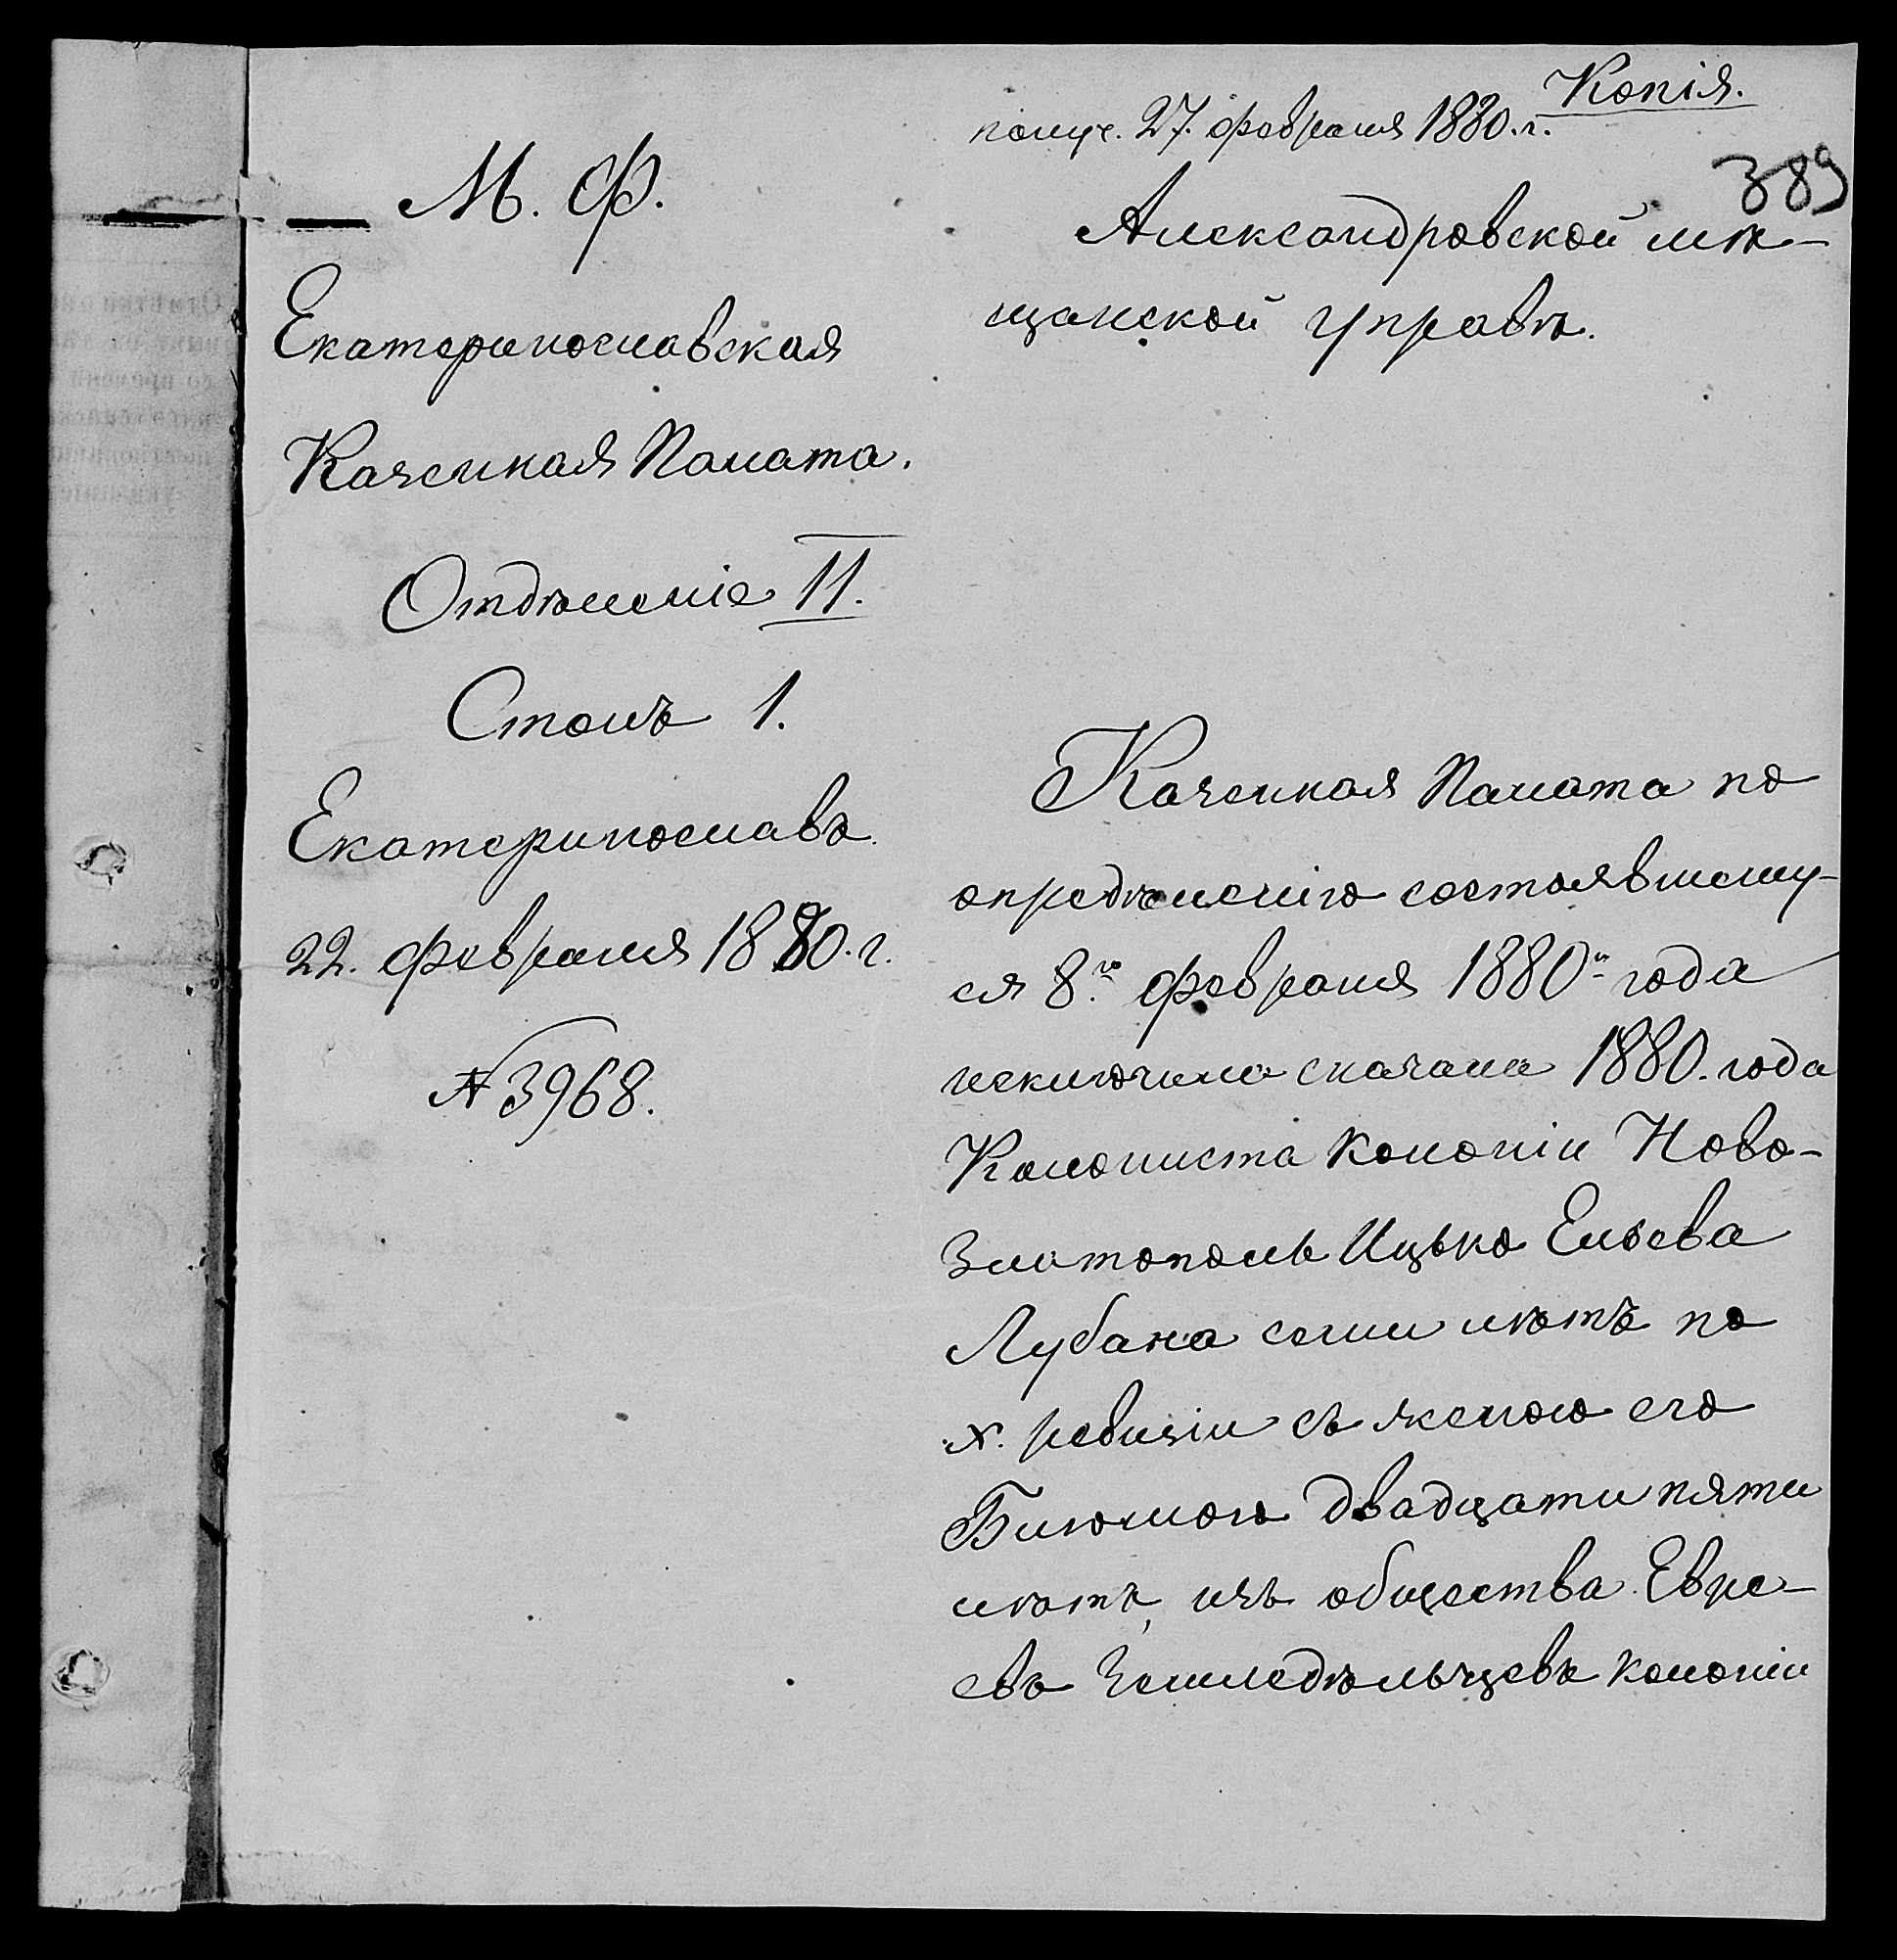 Копія.
получ. 27. февраля 1880. г.
389
М. Ф.
Екатеринославская
Казенная Палата.
Отдѣленіе II.
Столъ 1.
Екатеринославъ.
22. февраля 1880. г.
№ 3968.
Александровской мѣ-
щанской управѣ.
Казенная Палата по
опредѣленію состоявшему-
ся 8.го февраля 1880 года
исключила сначала 1880. года
Колониста колоніи Ново-
Златополь Ицько Ельева
Лубана семи лѣтъ по
X. ревизіи съ женою его
Блюмою двадцати пяти
лѣтъ, изъ общества Евре-
евъ Земледѣльцевъ колоніи